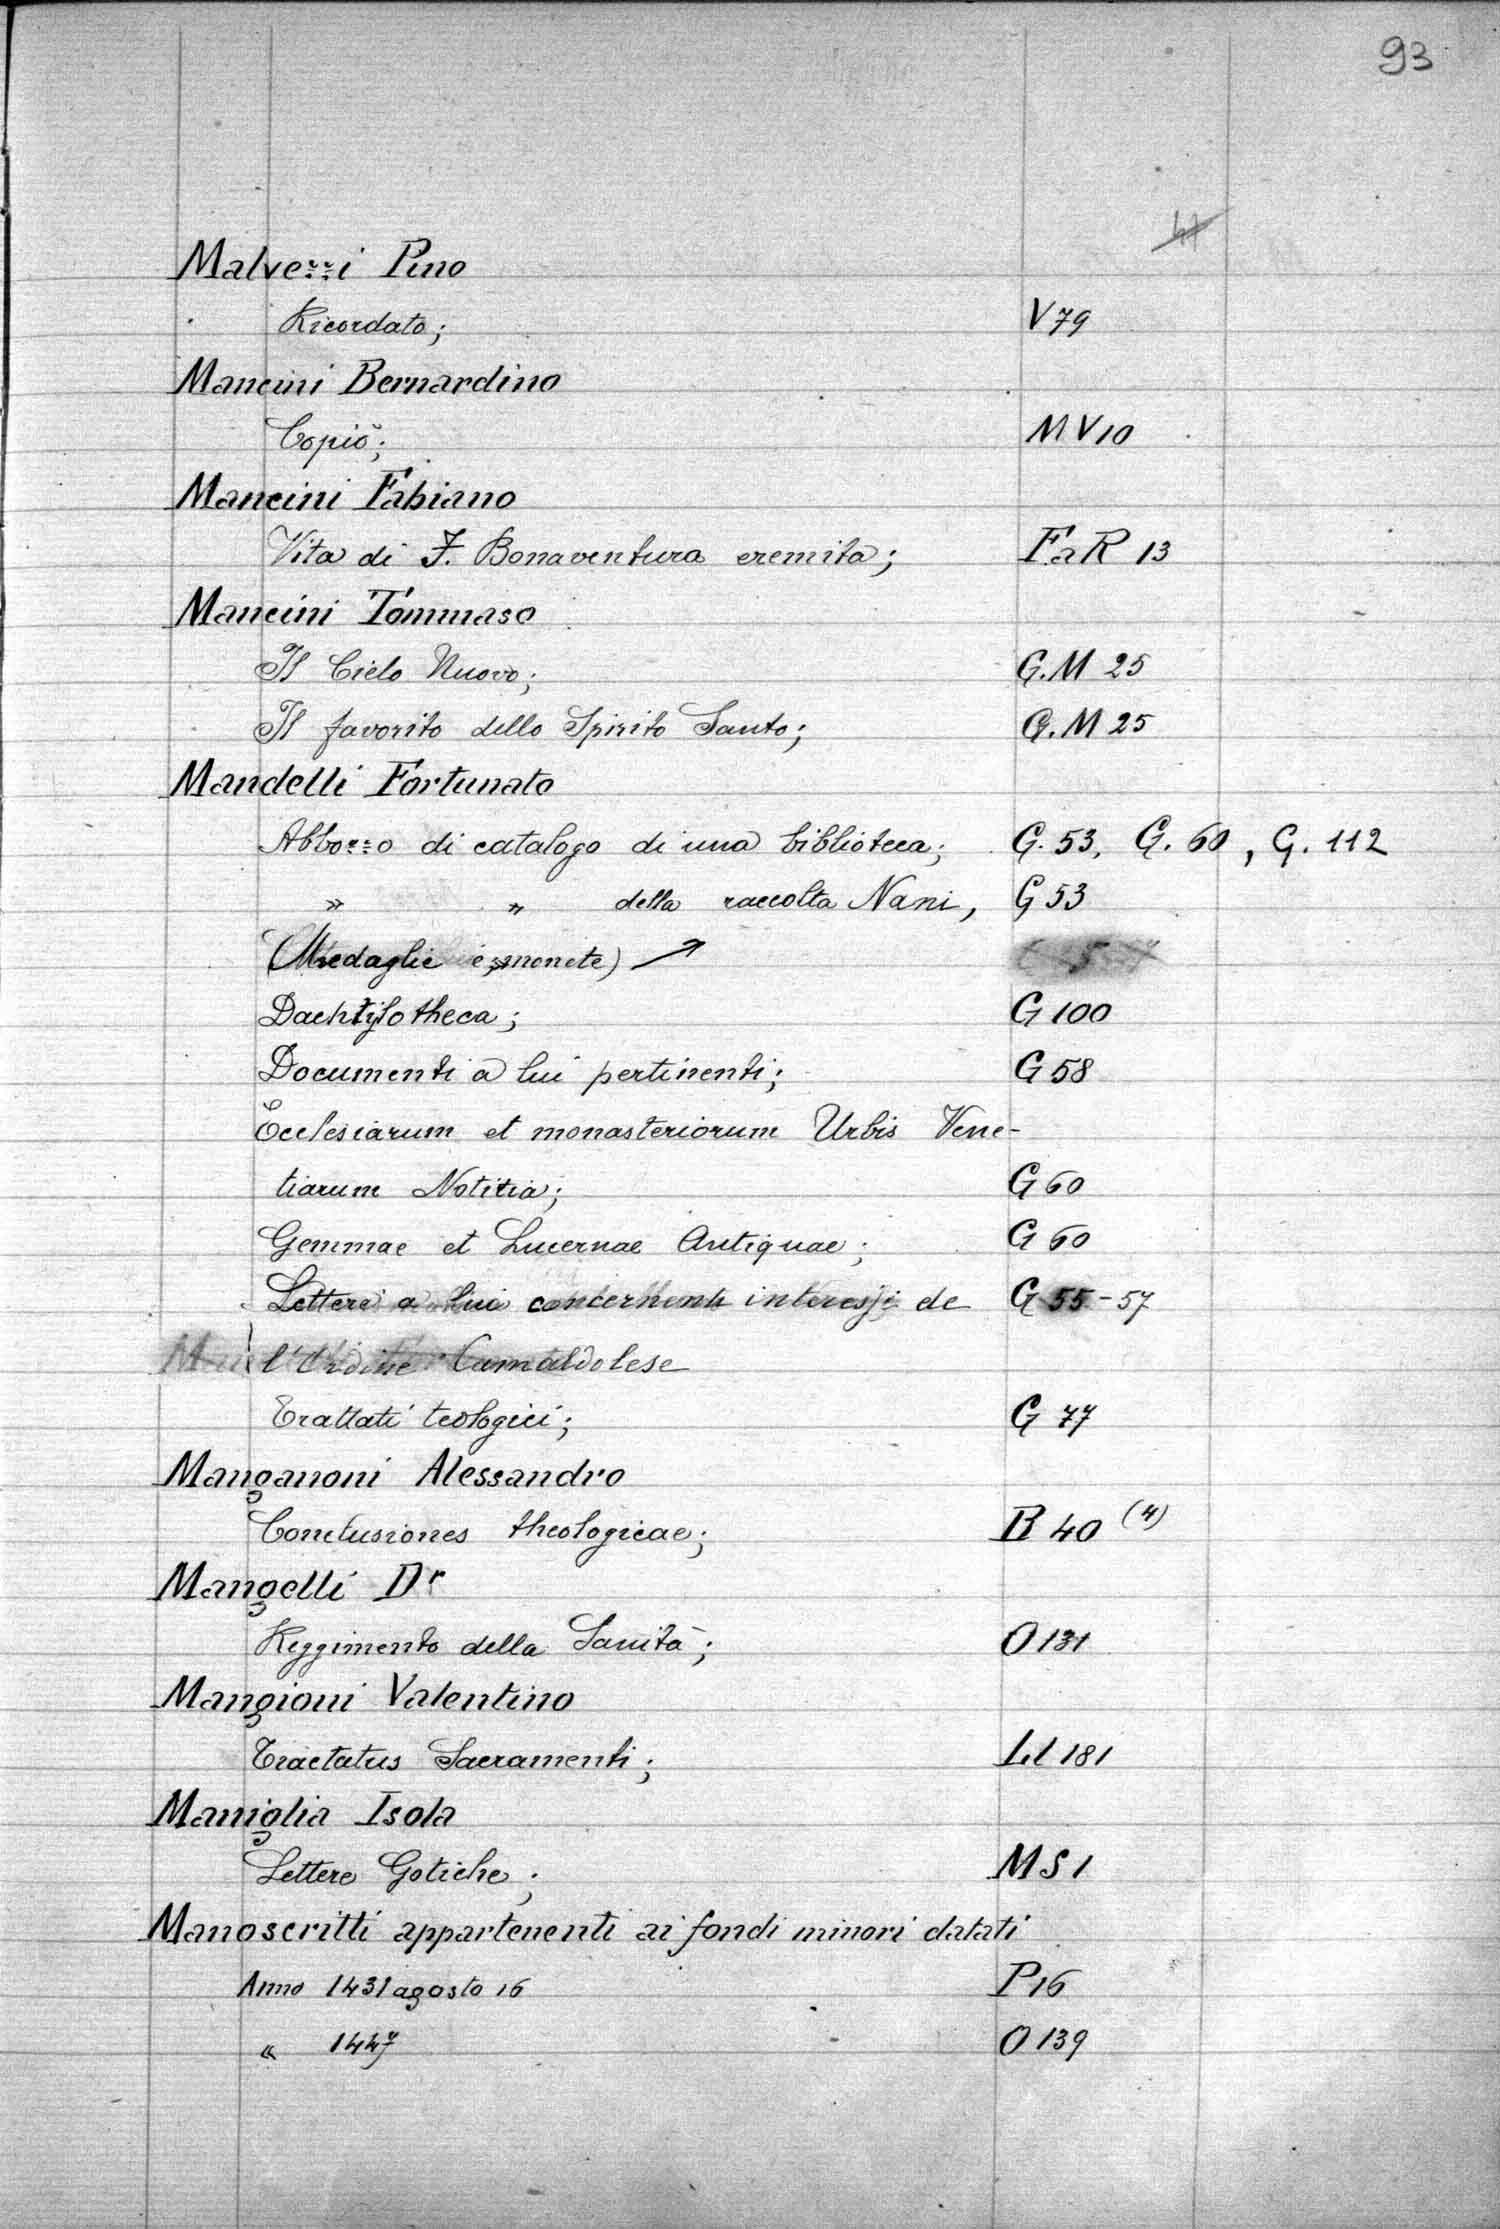 93
Malvezzi Pino
Ricordato; V 79
Mancini Bernardino
Copiò; M V 10
Mancini Fabiano
Vita di F. Bonaventura eremita; F a R 13
Mancini Tommaso
Il Cielo Nuovo; G. M 25
Il favorito dello Spirito Santo; G. M 25
Mandelli Fortunato
Abbozzo di catalogo di una biblioteca; G. 53, G. 60, G. 112
» » della raccolta Nani, G 53
(Medaglie e monete)
Dachtyliotheca; G 100
Documenti a lui pertinenti; G 58
Ecclesiarum et monasteriorum Urbis Vene-
tiarum Notitia; G 60
Gemmae et Lucernae Antiquae; G 60
Lettere a lui concernenti interessi de G 55-57
l'Ordine Camaldolese
Trattati teologici; G 77
Manganoni Alessandro
Conclusiones theologicae; B 40 (4)
Mangelli Dr
Reggimento della Sanità; O 131
Mangioni Valentino
Tractatus Sacramenti; Ll 181
Maniglia Isola
Lettere Gotiche; M S 1
Manoscritti appartenenti ai fondi minori datati
Anno 1431 agosto 16 P 16
« 1447 O 139